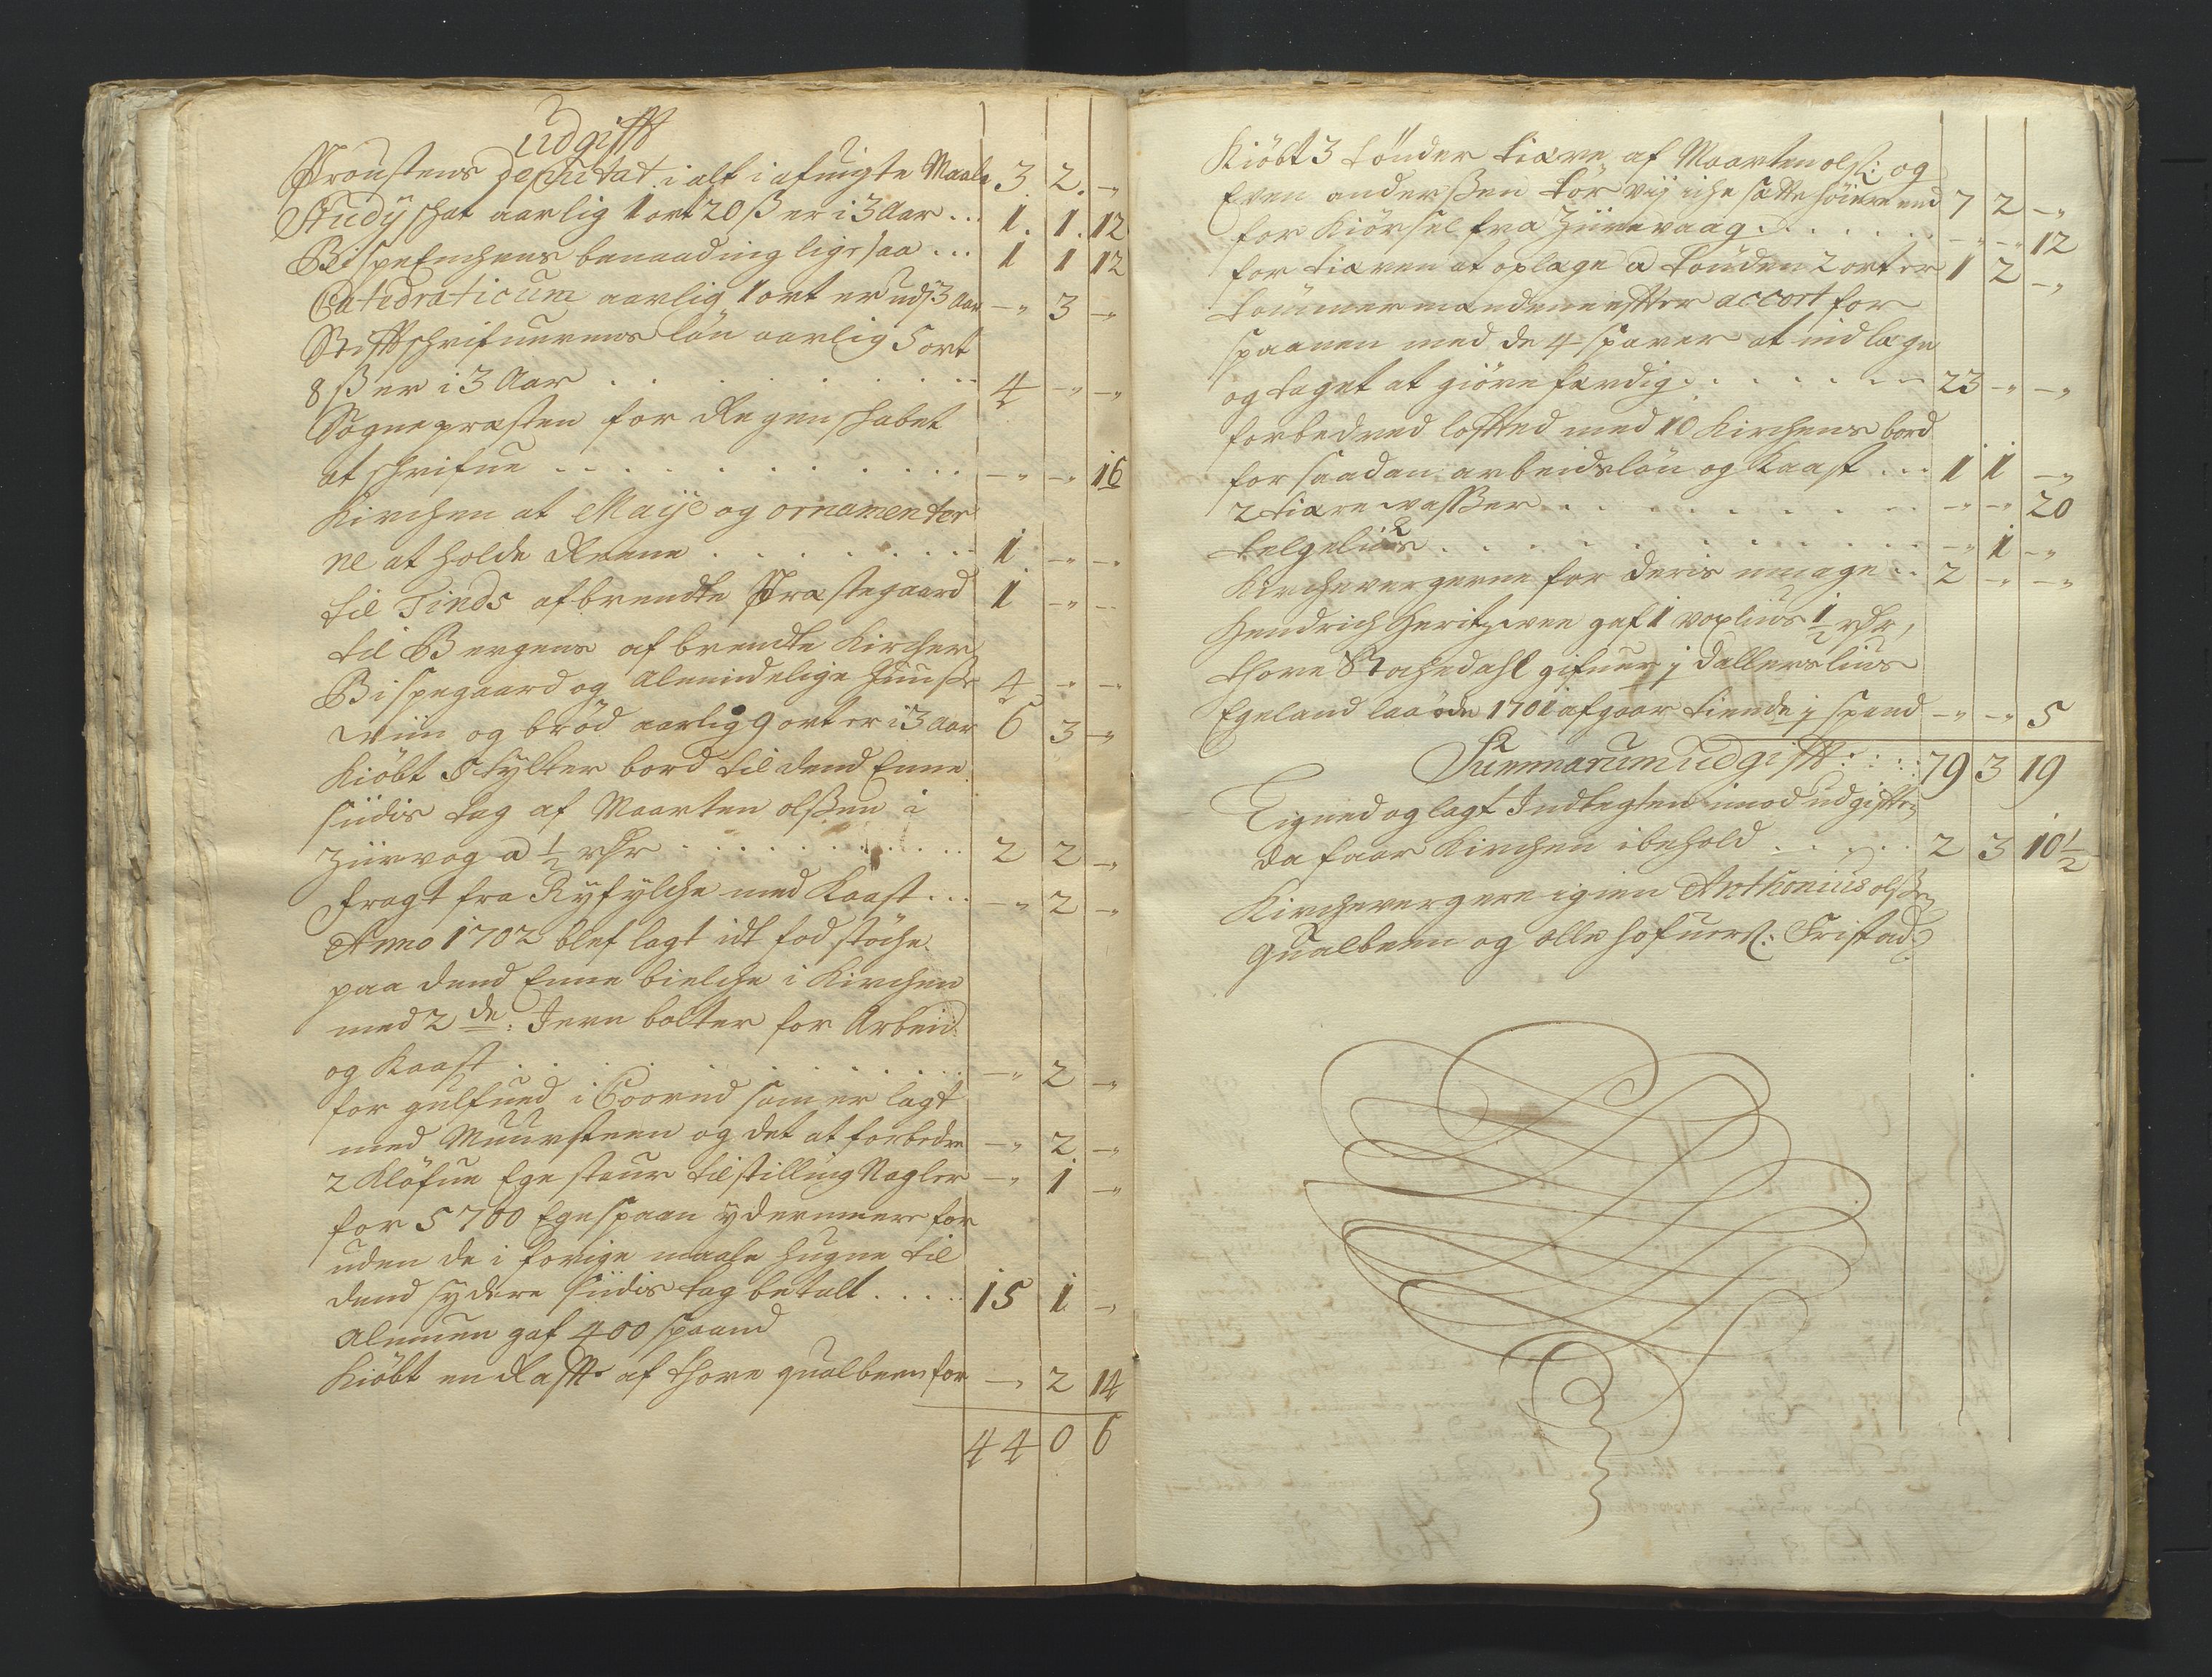 Udgifft
Proustens Deputat i alt i afuigte Maale 3. 2. -"
Studij schat aarlig 1 ort 20 ß er i 3 Aar ... 1. 1. 12
BispeEnchens benaading lige saa ... 1 1 12
Catedraticum aarlig 1 ort er udj 3 Aar -" 3 -"
Stifftschrifuerens lön aarlig 5 ort
8 ß er i 3 Aar . . . . 4 -" -"
Sognepræsten for Regenschabet
at schrifue . . . . -" -" 16
Kirchen at Maije og ornamenter
ne at holde Reene . . . . 1. -" -"
til Tinds afbrendte Præstegaard 1 -" --
til Bergens afbrendte Kircher
Bispegaard og Almindelige Huuse 4 -" -"
Wiin og bröd aarlig 9 ort er i 3 Aar 6 3 -"
Kiöbt 5 tylter bord til dend Ene
siidis tag af Maarten olßen i
Ziirvog a ½ rdr . . . . 2 2 -"
fragt fra Ryfylche med Kaast ... -" 2 -"
Anno 1702 blef lagt idt fodstöche
paa dend Ene bielche i Kirchen
med 2 de: Jern bolter for Arbeid
og Kaast . . . . -" 2 -"
for gulfued i Coored som er lagt
med Muursteen og det at forbedre -" 2. -"
2 Klöfue Ege staur til stilling Nagler -" 1 -"
for 5700 Egespaan ydermeere for
uden de i forige maale hugne til
dend sydere siidis tag betalt . . . . 15 1 -"
Almuen gaf 400 spaand
Kiöbt en Raffte af Thore qualbeen for -" 2 14
44 0 6
Kiöbt 3 tönder tiære af Maarten olß: og
Even anderßen tör vij iche sætte höiere end 7 2 -"
for Kiörsel fra Ziirevaag . . . . -" -" 12
for tiæren at oplage a tönden 2 ort er 1 2 -"
tömmermændene effter accort for
spaanen med de 4 sparer at indlæge
og taget at giöre færdig . . . . 23 -" -"
forbedred lofftet med 10 Kirchens bord
for saadan arbeidslön og Kaast ... 1 1 -"
2 tiære waßer . . . . -" -" 20
telgelius . . . . -" 1 -"
Kirchevergerne for deris umage .. 2 -" -"
Hendrich Geritz wee gef 1 voxlius ½ rdr,
Thore Stochedahl gifuer j dallers lius
Egeland laa öde 1701 afgaar tiende j spand -" -" 5
Summarum Udgifft : : : 79 3 19
Ligned og lagt Indtegten imod udgiffte,
da faar Kirchen i behold . . . . 2 3 10½
Kirchevergere igien Anthonius olßen
qualbeen og olle hofuerß: Tristad?